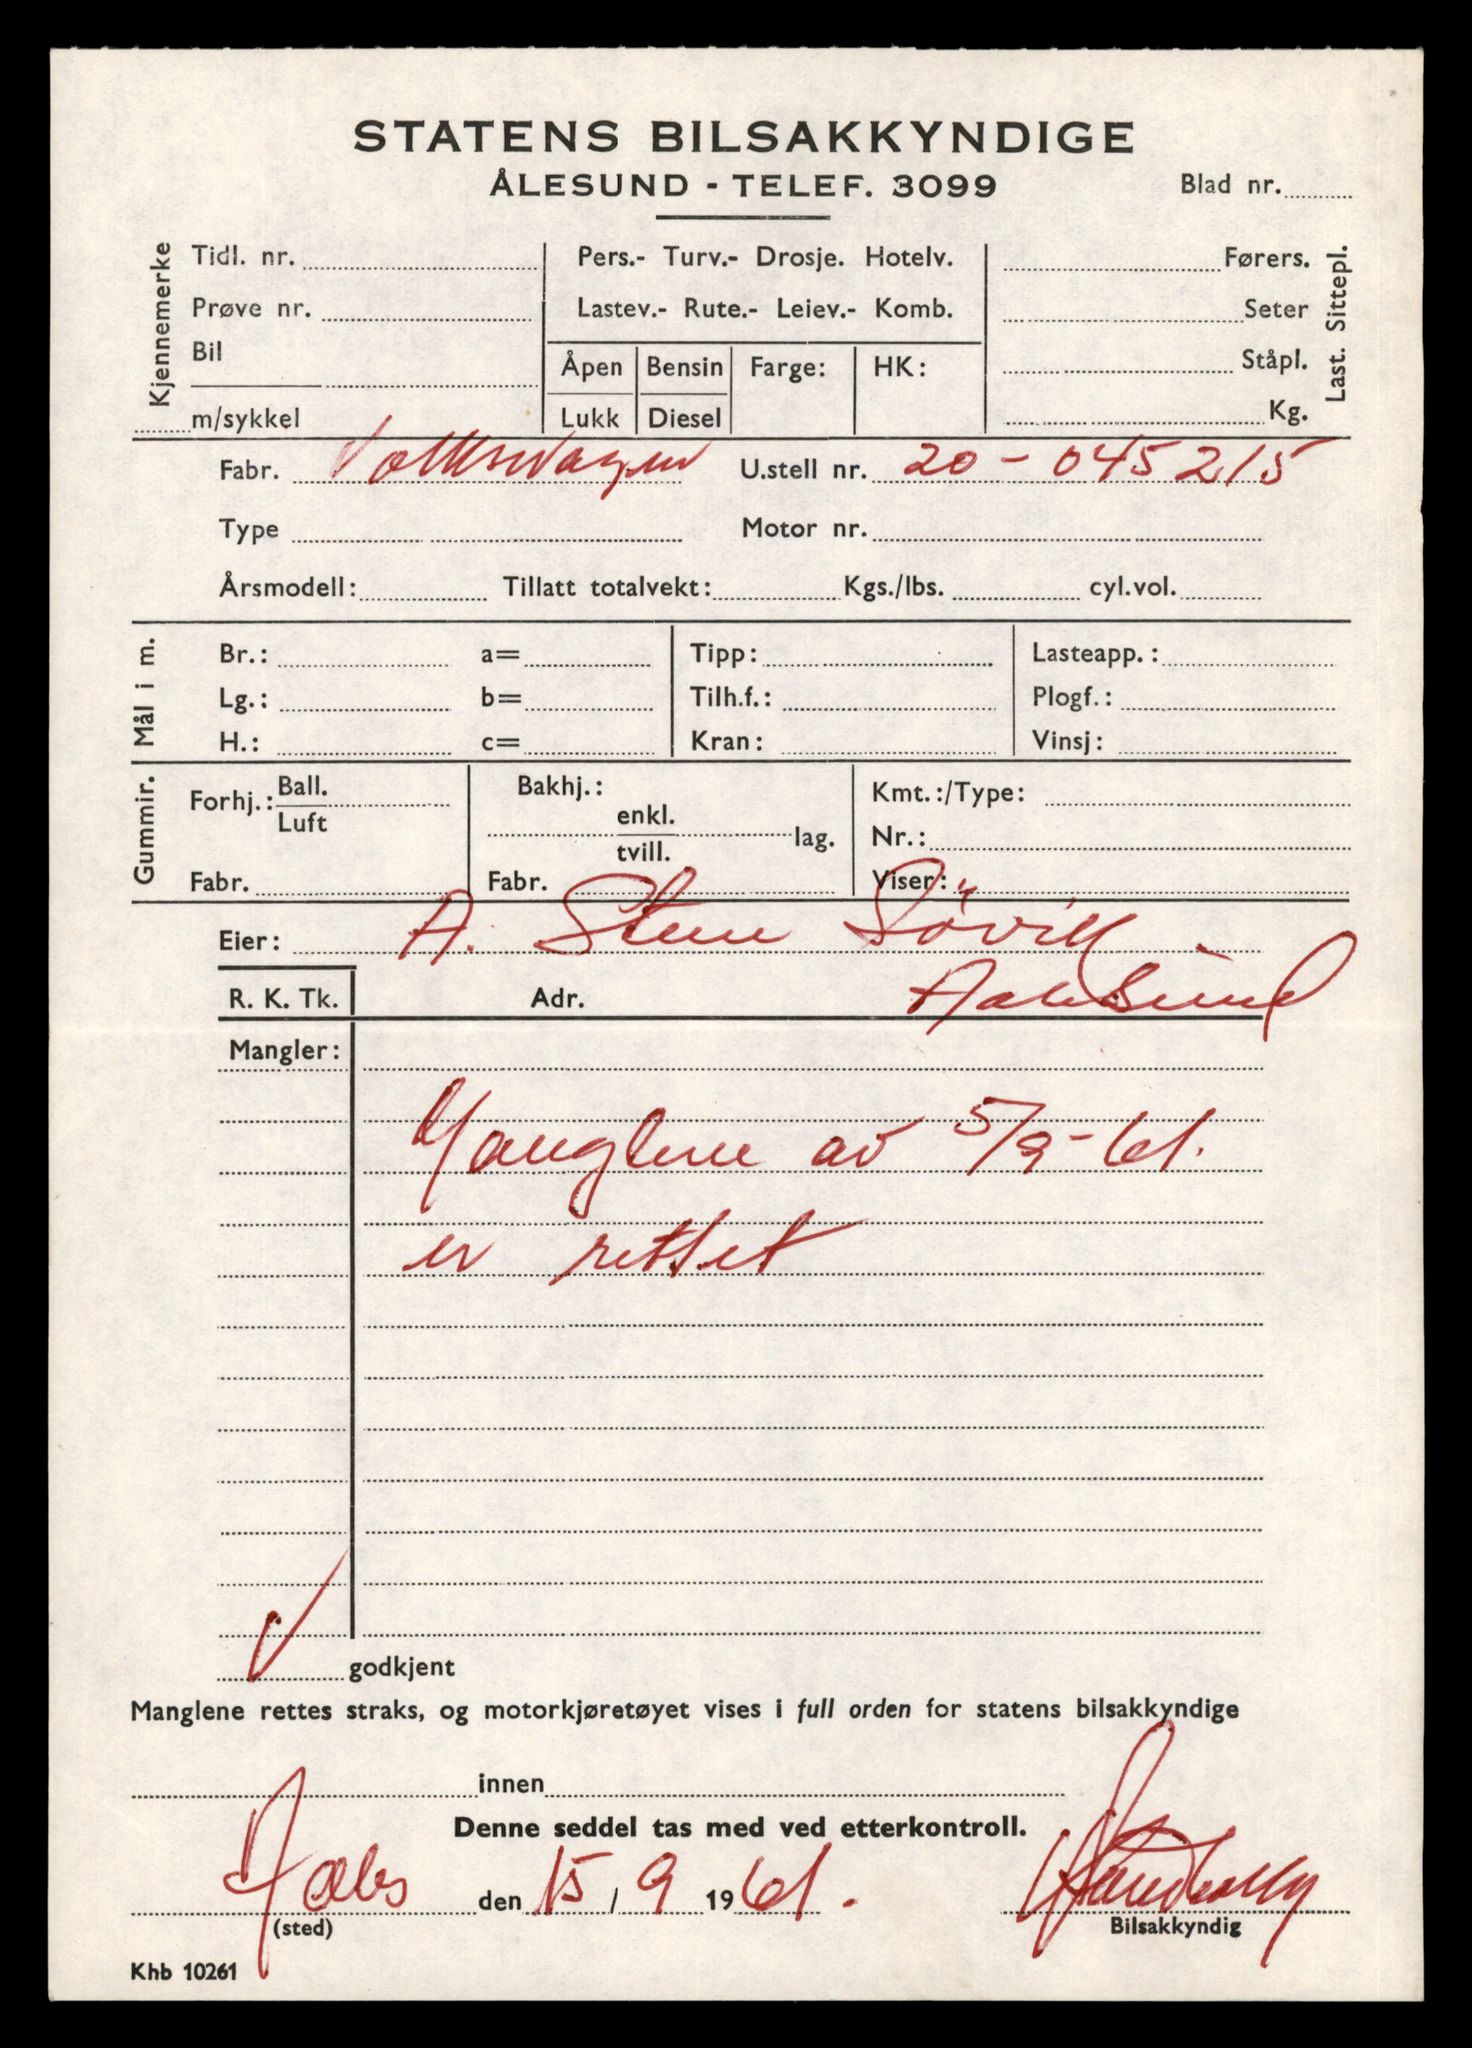 STATENS BILSAKKYNDIGE
ÅLESUND - TELEF. 3099
Blad nr.
Kjennemerke
Tidl. nr.
Prøve nr.
Bil
m/sykkel
Pers.- Turv.- Drosje. Hotelv.
Lastev.- Rute.- Leiev.- Komb.
Åpen Bensin Farge: HK:
Lukk Diesel
Førers.
Seter
Ståpl.
Kg.
Last. Sittepl.
Fabr. Volkswagen U.stell nr. 20-045215
Type Motor nr.
Årsmodell: Tillatt totalvekt: Kgs./lbs. cyl.vol.
Mål i m.
Br.: a= Tipp: Lasteapp.:
Lg.: b= Tilh.f.: Plogf.:
H.: c= Kran: Vinsj:
Gummir.
Forhj.: Ball.
Luft
Fabr.
Bakhj.:
enkl.
tvill. lag.
Fabr.
Kmt.:/Type:
Nr.:
Viser:
Eier: A. Steen
R. K. Tk. Adr. Aalesund
Mangler:
Manglene av 5/9-61.
er rettet
godkjent
Manglene rettes straks, og motorkjøretøyet vises i full orden for statens bilsakkyndige
innen
Denne seddel tas med ved etterkontroll.
Aales den 15 / 9 1961.
(sted) Bilsakkyndig
Khb 10261